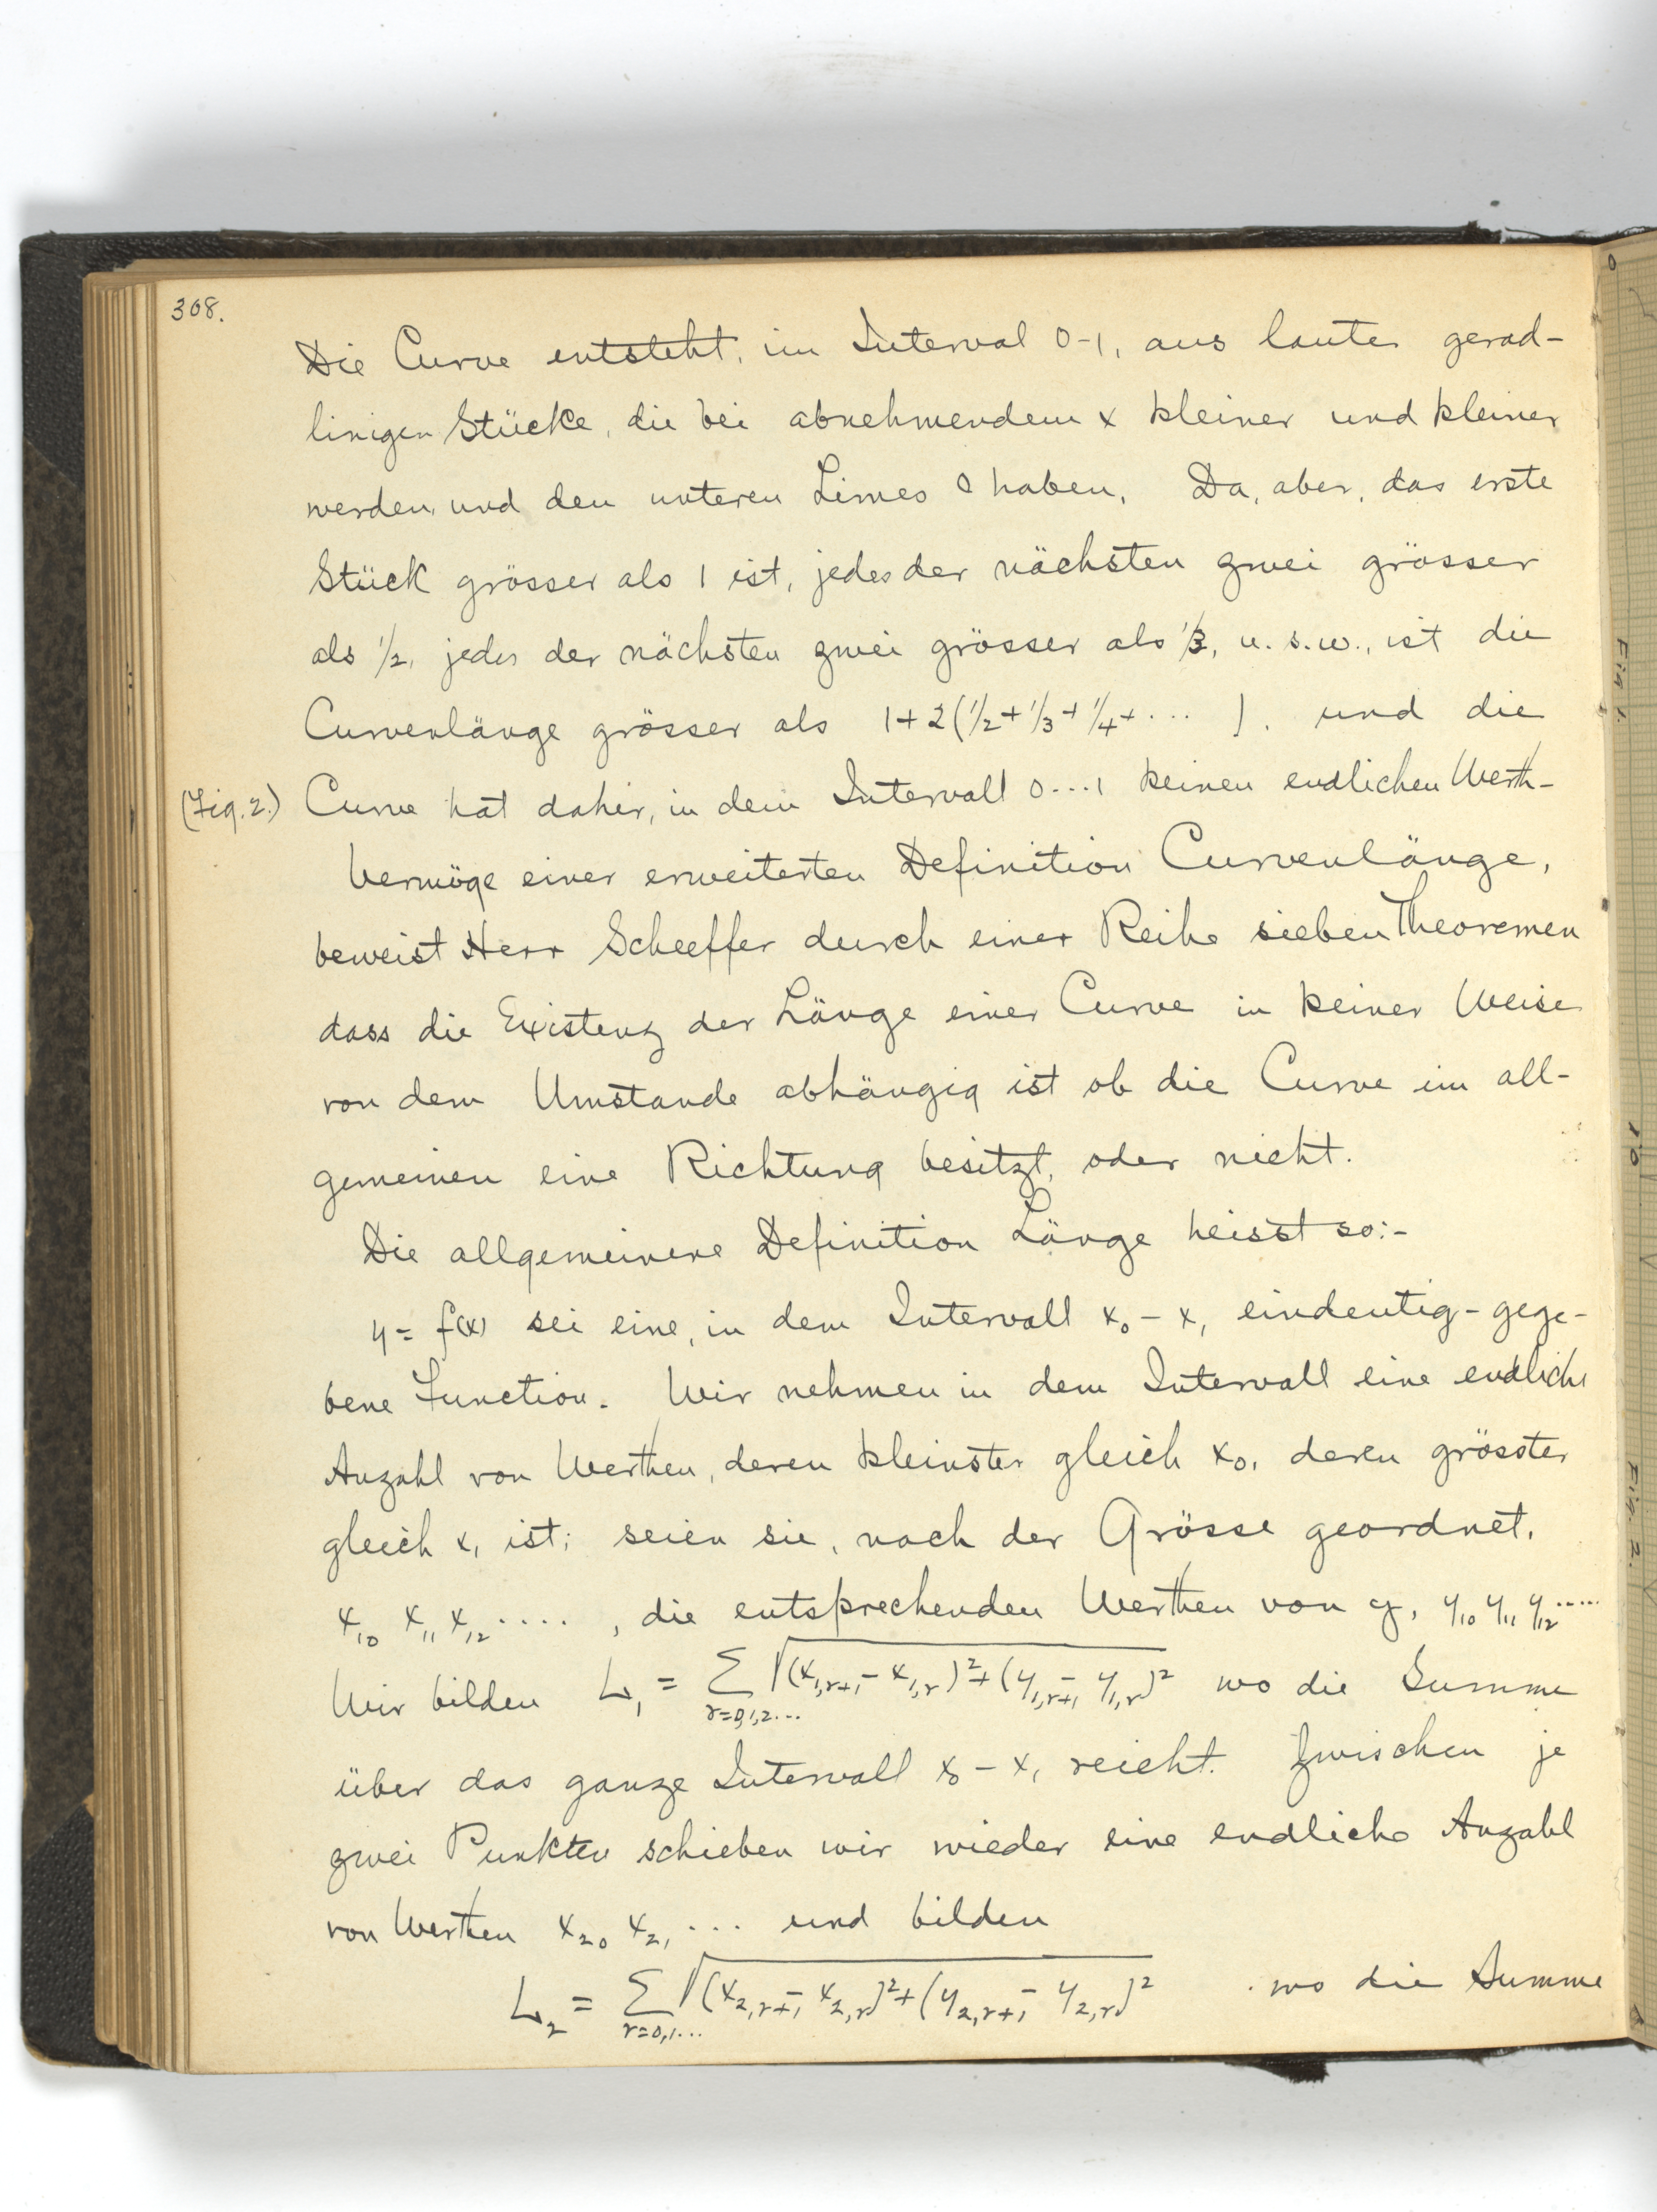 308.
Die Curve entsteht, im Interval 0-1, aus lauter gerad-
linigen Stücke, die bei abnehmendem x kleiner und kleiner
werden, und den unteren Limes 0 haben. Da, aber, das erste
Stück grösser als 1 ist, jedes der nächsten zwei grösser
als 1/2, jedes der nächsten zwei grösser als 1/3, u. s. w., ist die
Curvenlänge grösser als 1+2(1/2+1/3+1/4+... ), und die
(Fig. 2.) Curve hat daher, in dem Intervall 0...1 keinen endlichen Werth-
Vermöge einer erweiterten Definition Curvenlänge,
beweist Herr Scheeffer durch einer Reihe sieben Theoremen
dass die Existenz der Länge einer Curve in keiner Weise
von dem Umstande abhängig ist ob die Curve im all-
gemeinen eine Richtung besitzt, oder nicht.
Die allgemeinere Definition Länge heisst so:-
y = f(x) sei eine, in dem Intervall x₀ - x₁ eindeutig-gege-
bene Function. Wir nehmen in dem Intervall eine endliche
Anzahl von Werthen, deren kleinster gleich x₀, deren grösster
gleich x₁ ist; seien sie, nach der Grösse geordnet,
x₁₀ x₁₁ x₁₂ .... , die entsprechenden Werthen von y, y₁₀ y₁₁ y₁₂.....
Wir bilden L₁ = Σ_{r=0,1,2...} √(x_{1,r+1} - x_{1,r})² + (y_{1,r+1} - y_{1,r})² wo die Summe
über das ganze Intervall x₀ - x₁ reicht. Zwischen je
zwei Punkten schieben wir wieder eine endliche Anzahl
von Werthen x₂₀ x₂₁ ... und bilden
L₂ = Σ_{r=0,1...} √(x_{2,r+1} - x_{2,r})² + (y_{2,r+1} - y_{2,r})² wo die Summe
Fig 1.
Fig. 2.